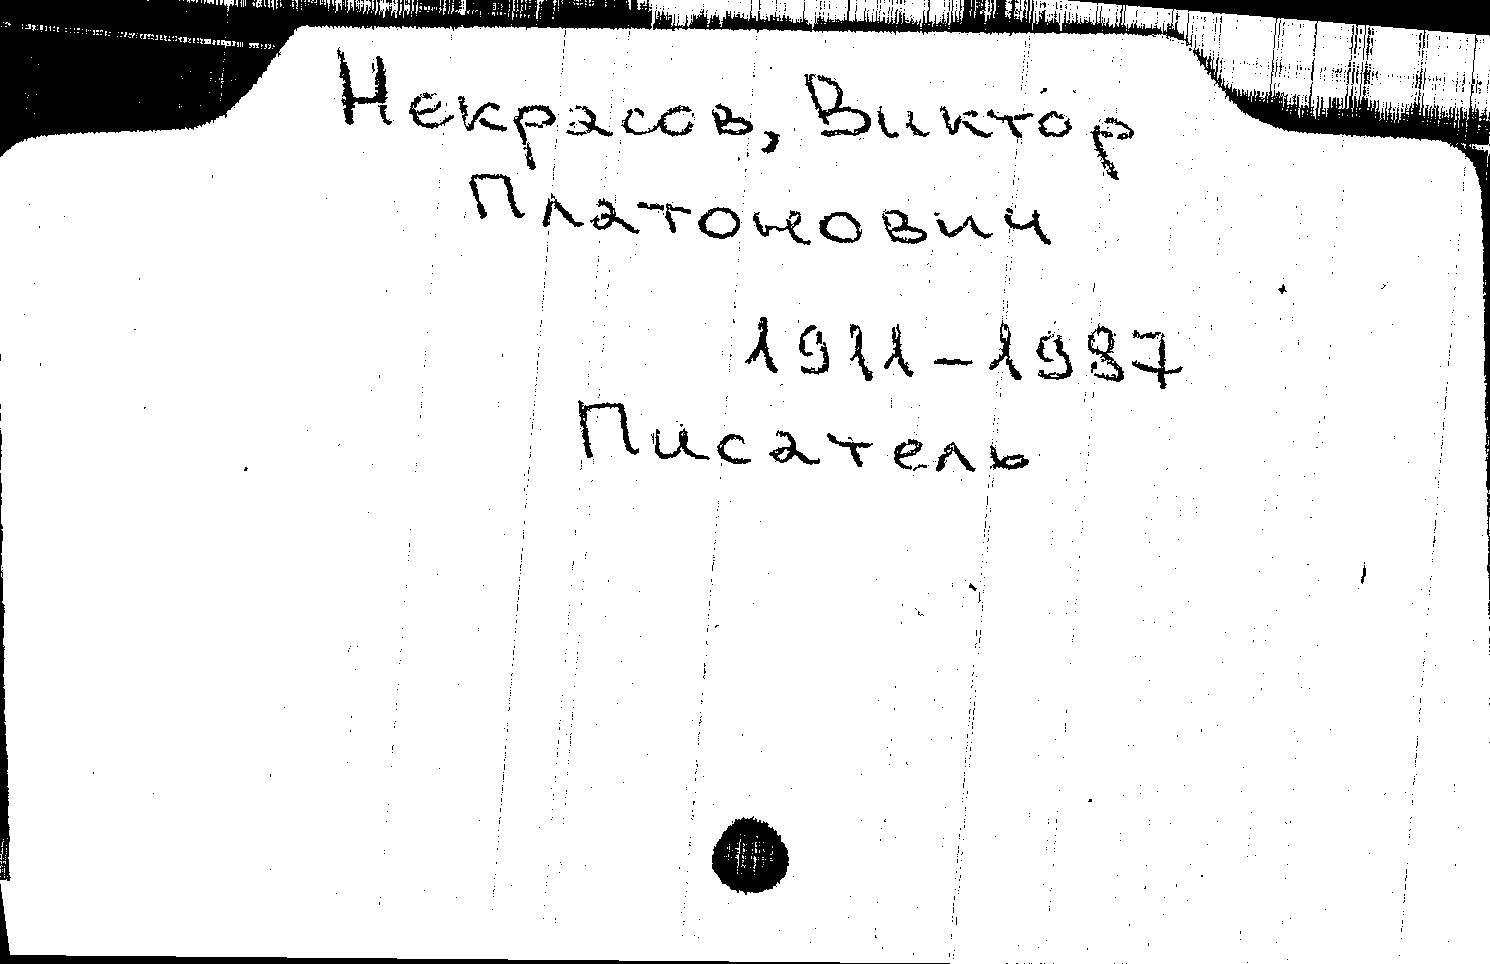 Некрасов, Виктор
Платонович
1911-1987
Писатель